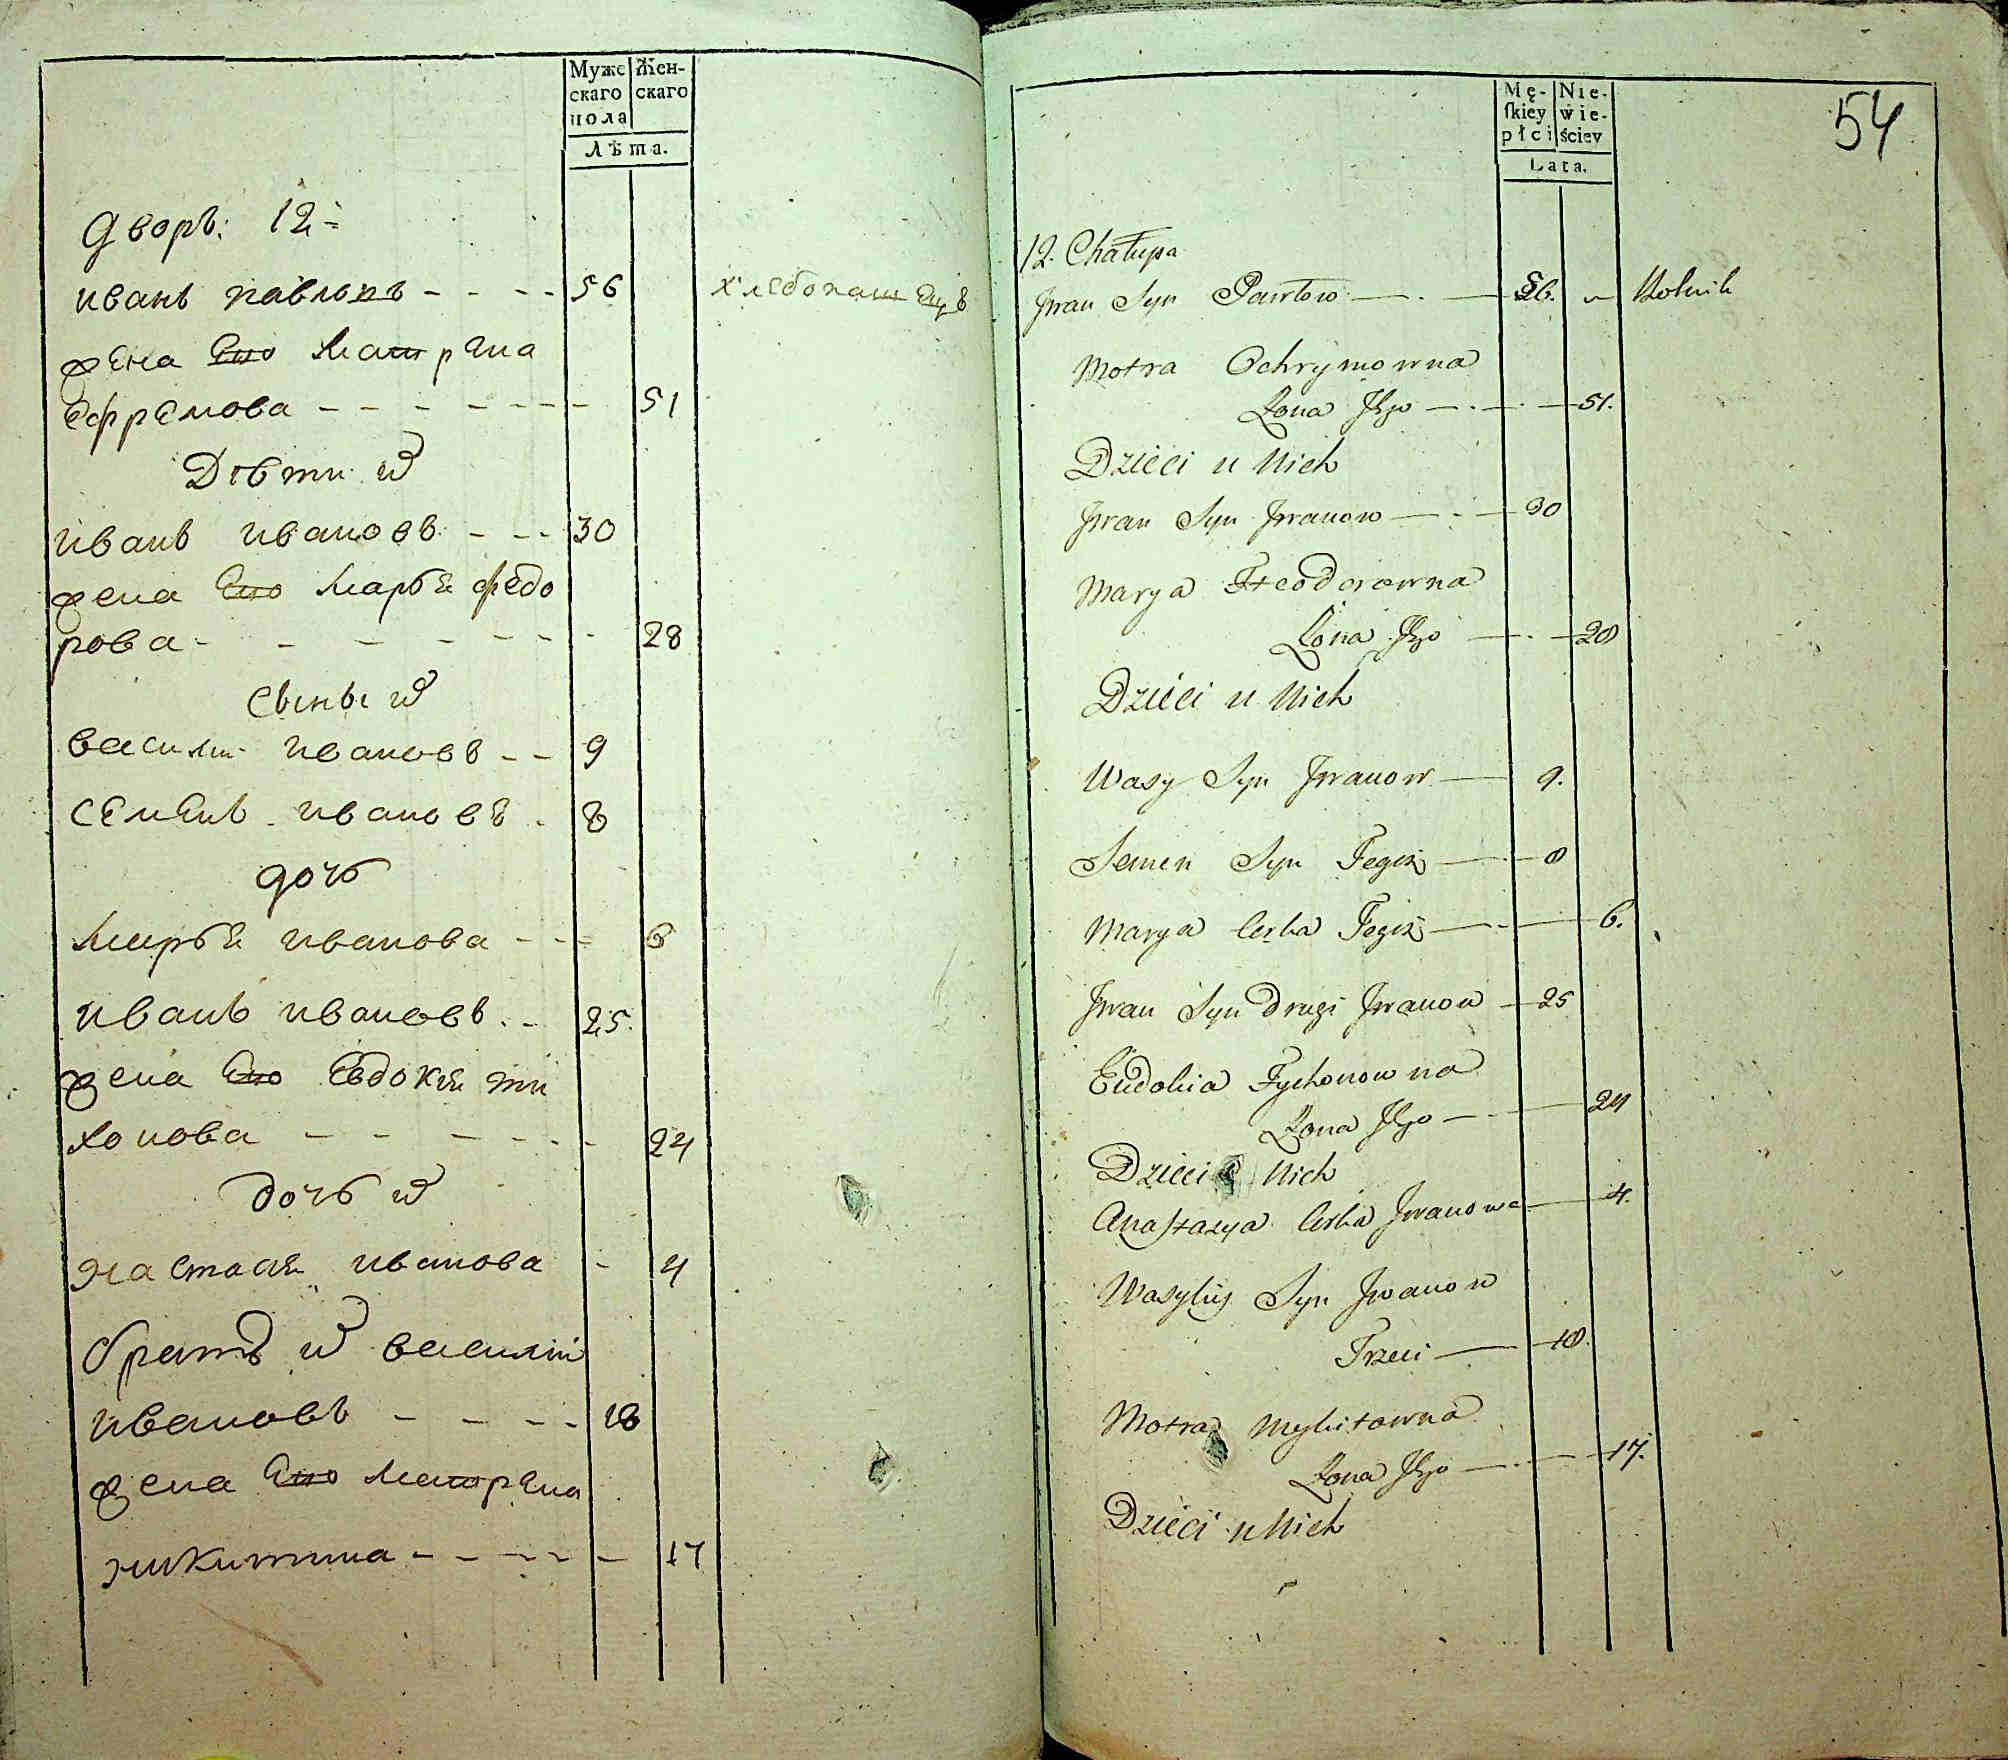 Муже
скаго
пола
Жен-
скаго
Лѣта.
Дворъ: 12
иванъ павловъ 56 хлебопашецъ
жена Его Матрена
Ефремова 51
Дѣти и͠
иванъ ивановъ 30
жена Его Марья федо
рова 28
сыны и͠
василий ивановъ 9
семенъ ивановъ 8
дочь
Марья иванова 6
иванъ ивановъ 25
жена Его Евдокия ти
хонова 24
дочь и͠
настася иванова 4
братъ и͠ василий
ивановъ 18
жена Его Матрена
никитина 17
54
Mę-
ſkiey
płci
Nie-
wie-
ściey
Lata.
12. Chałupa
Jwan Syn Pawłow 56. Rolnik
Motra Ochrymowna
Żona Jego 51.
Dzieci u Nich
Jwan Syn Jwanow 30
Marya Teodorowna
Żona Jego 28
Dzieci u Nich
Wasy Syn Jwanow 9.
Semen Syn Tegoż 8
Marya Corka Tegoż 6.
Jwan Syn Drugi Jwanow 25
Eudokia Tychonowna
Żona Jego 24
Dzieci u Nich
Anastazya Corka Jwanowa 4.
Wasyliy Syn Jwanow
Trzeci 18.
Motra Mykitowna
Żona Jego 17.
Dzieci u Nich